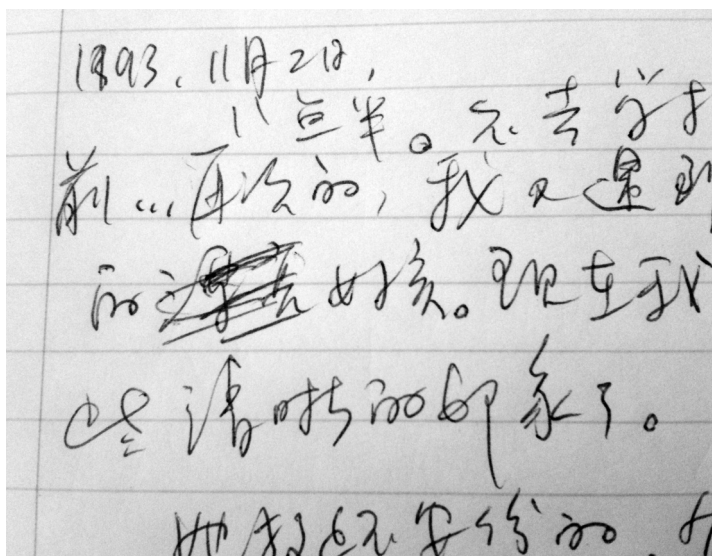 1893.11月2日,
八点半。允去学才
前…再次的,我又遇到
的 女孩。现在我
些清晰的印象了。
她 是不安份的,